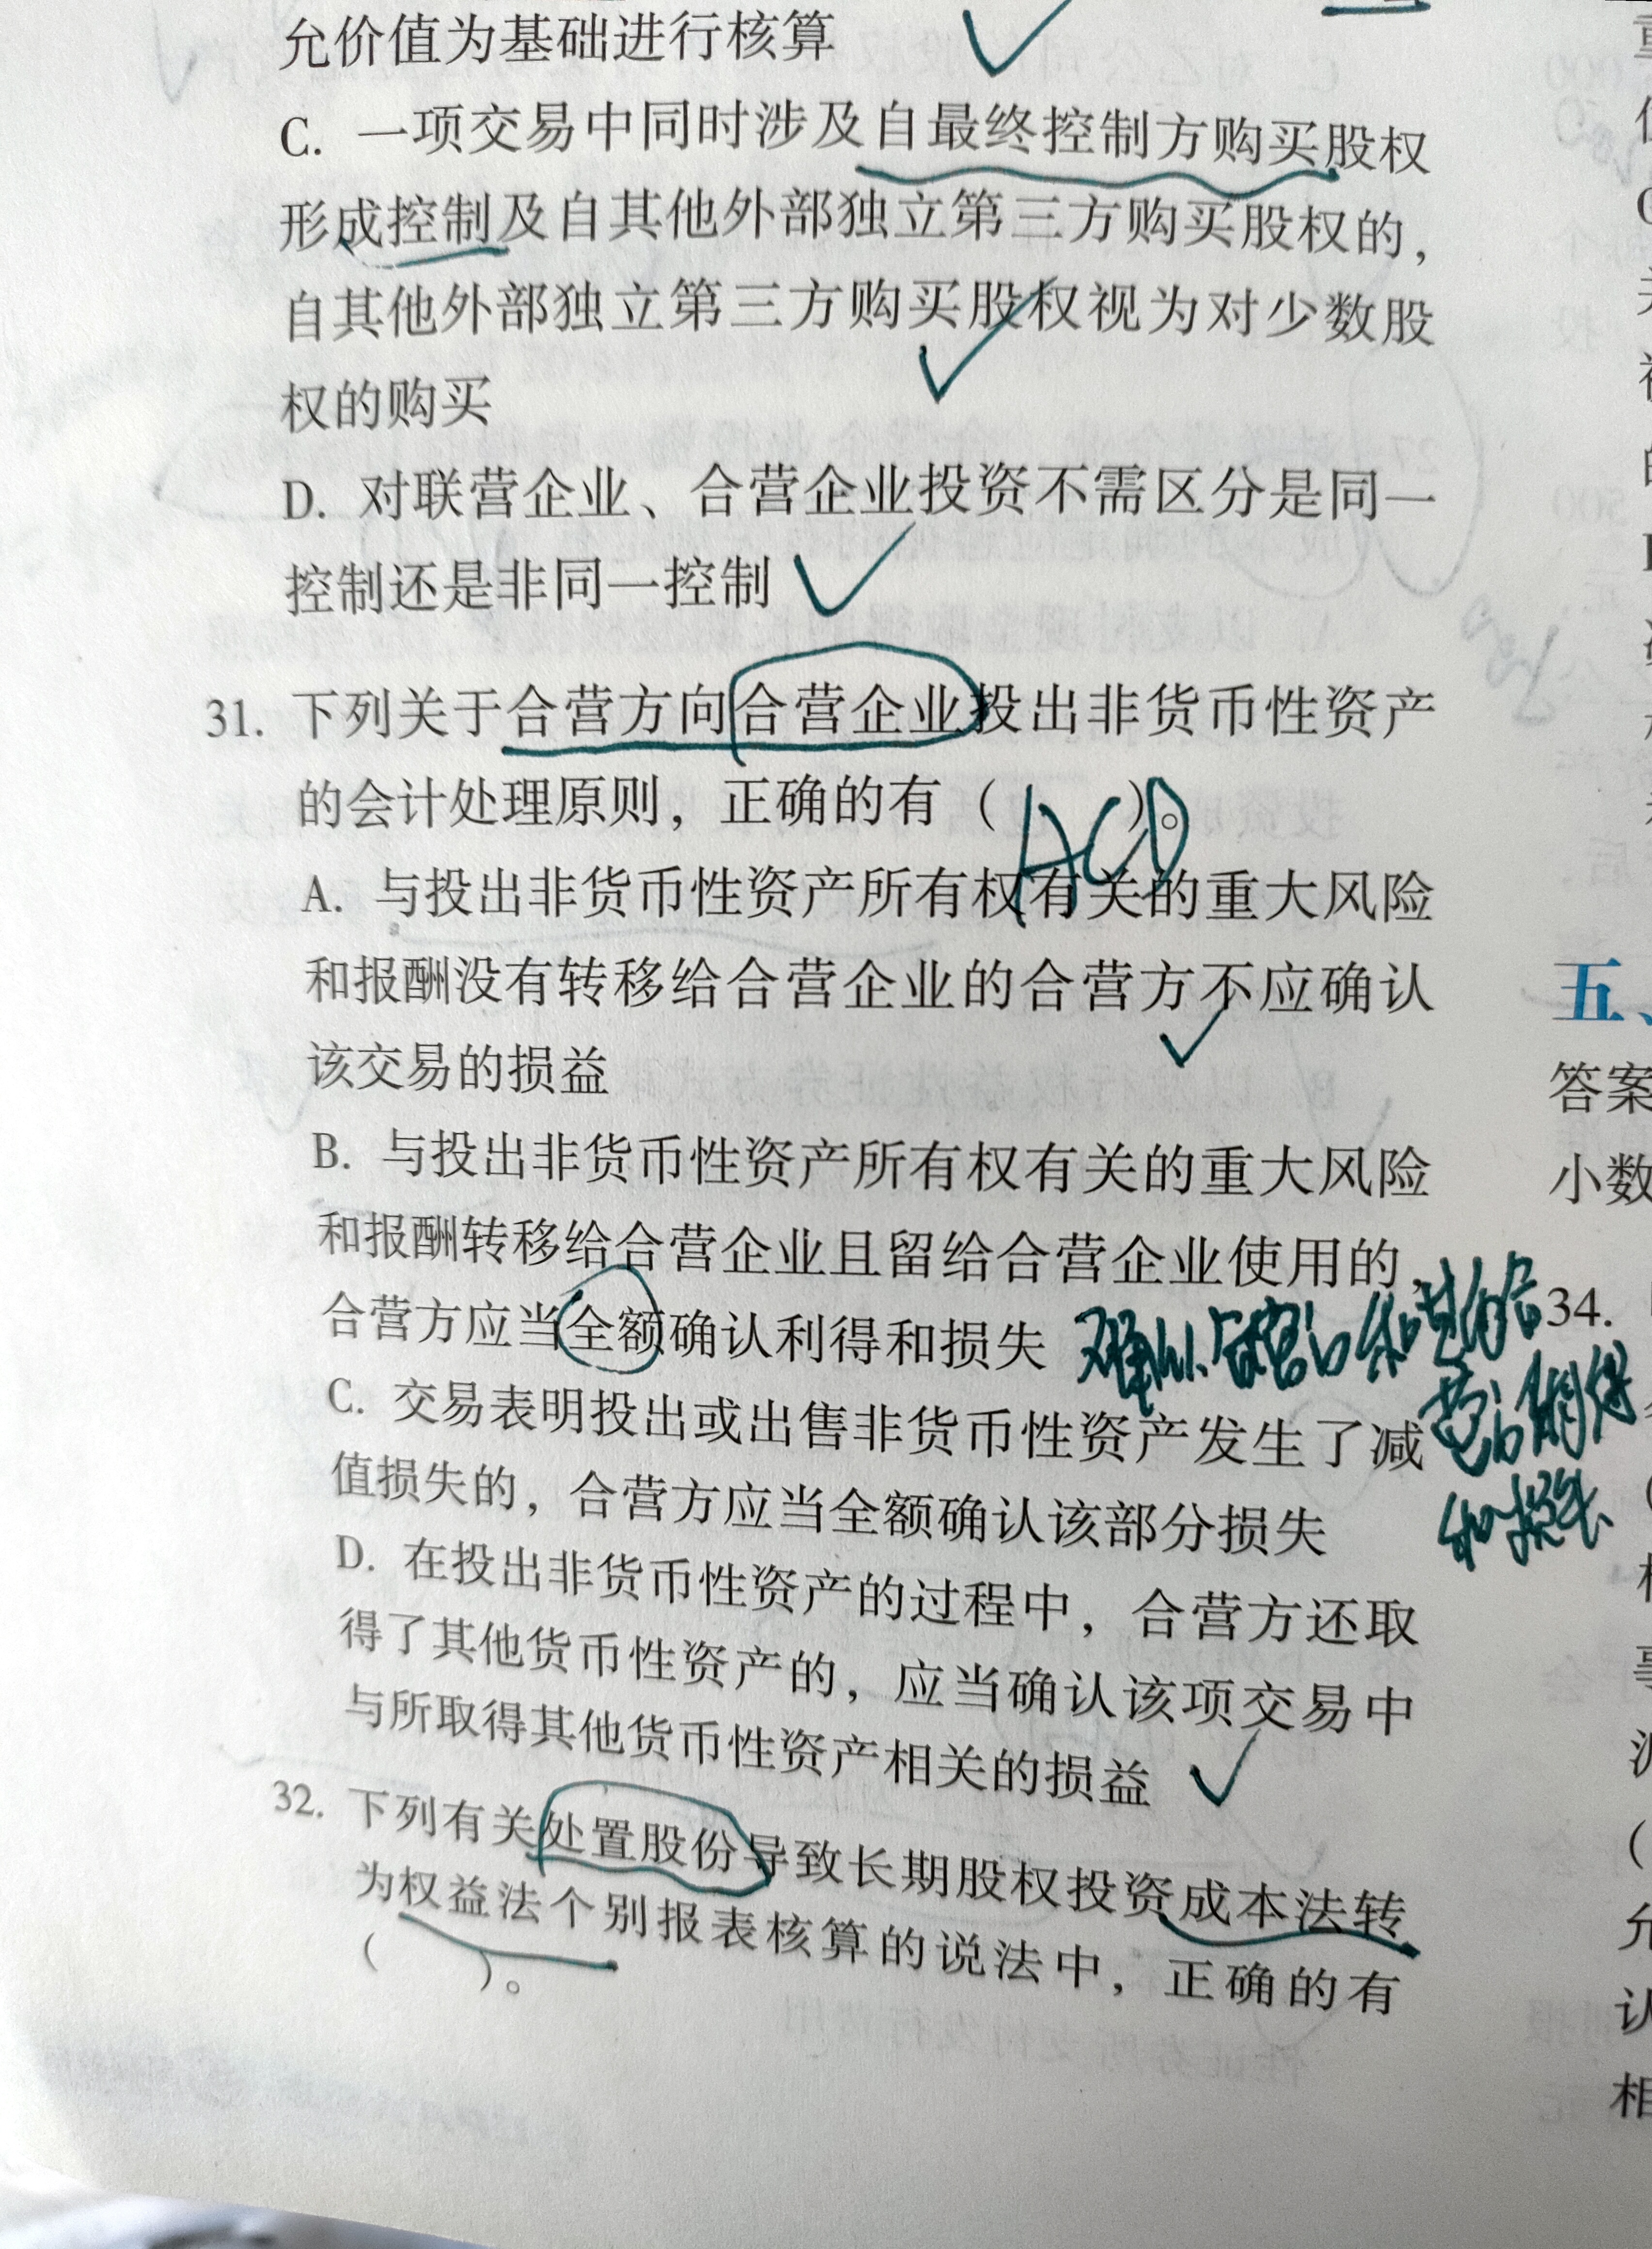 允价值为基础进行核算
C. 一项交易中同时涉及自最终控制方购买股权
形成控制及自其他外部独立第三方购买股权的，
自其他外部独立第三方购买股权视为对少数股
权的购买
D. 对联营企业、合营企业投资不需区分是同一
控制还是非同一控制
31. 下列关于合营方向合营企业投出非货币性资产
的会计处理原则，正确的有（ ）。
ACD
A. 与投出非货币性资产所有权有关的重大风险
和报酬没有转移给合营企业的合营方不应确认
该交易的损益
B. 与投出非货币性资产所有权有关的重大风险
和报酬转移给合营企业且留给合营企业使用的，
合营方应当全额确认利得和损失
C. 交易表明投出或出售非货币性资产发生了减
值损失的，合营方应当全额确认该部分损失
D. 在投出非货币性资产的过程中，合营方还取
得了其他货币性资产的，应当确认该项交易中
与所取得其他货币性资产相关的损益
32. 下列有关处置股份导致长期股权投资成本法转
为权益法个别报表核算的说法中，正确的有
（ ）。
和损失
五、
答案
小数
34.
允
认
相